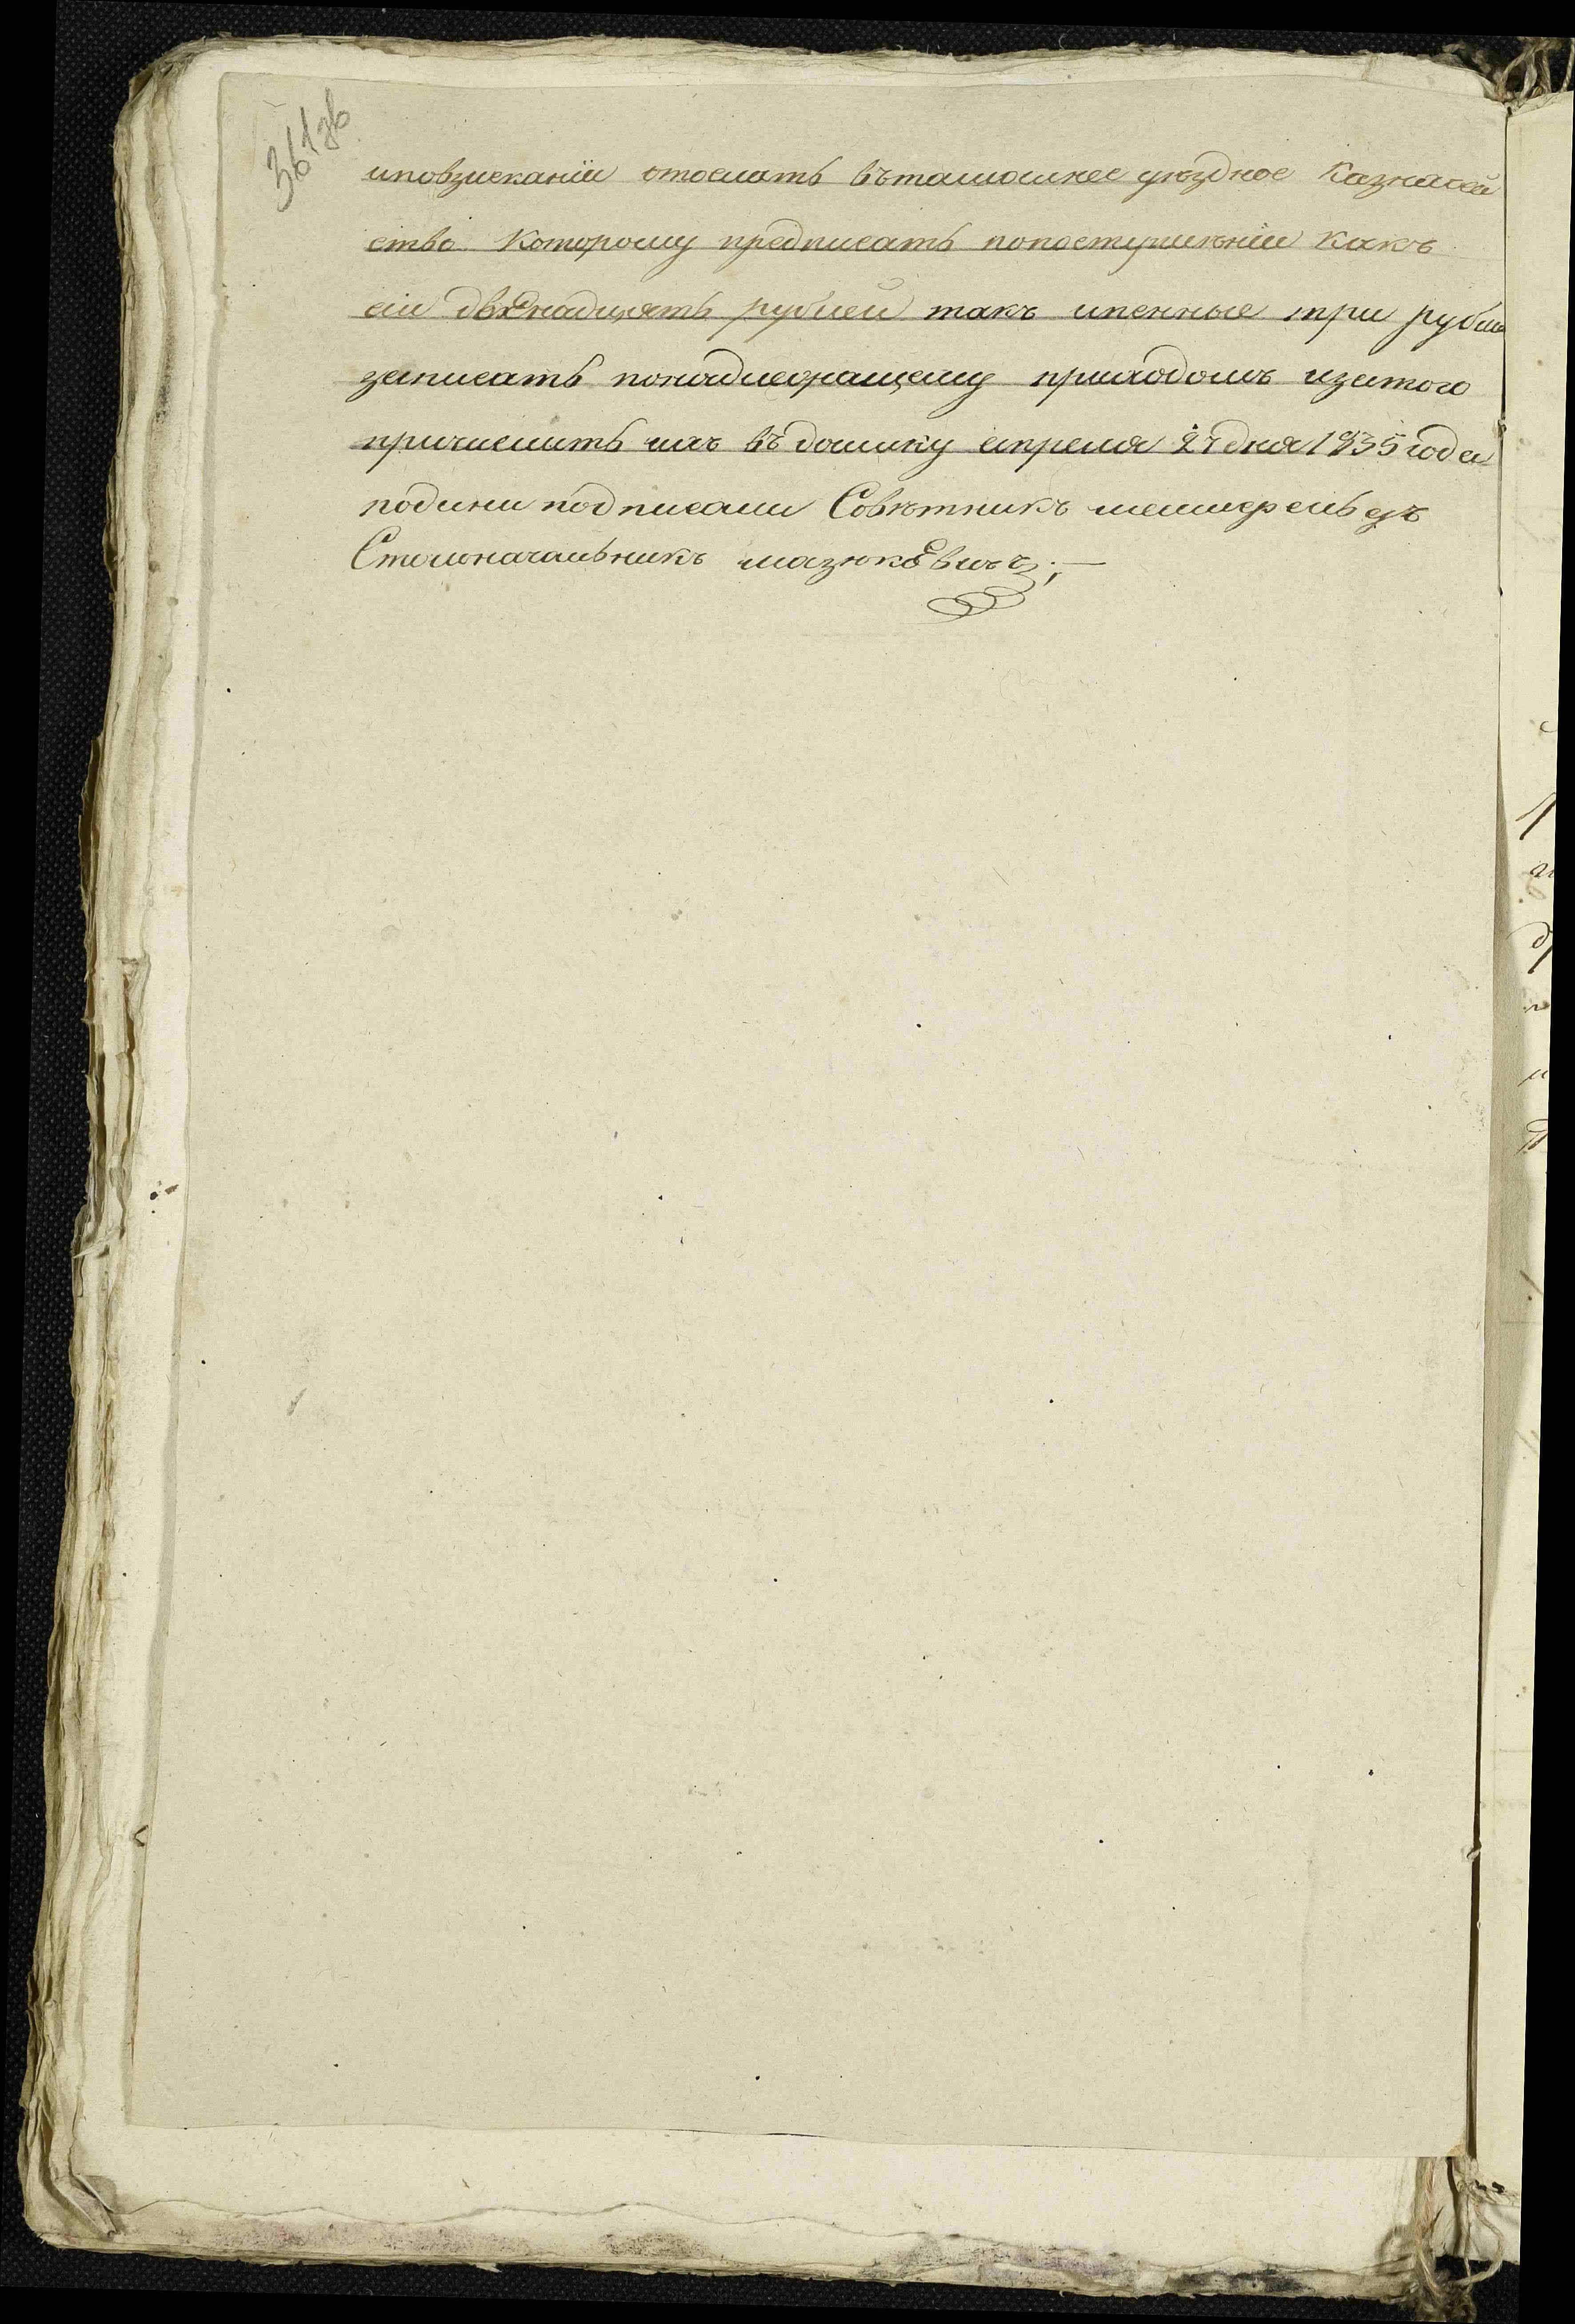 361 зв
иповзысканіи отослать вътамошнее уездное Казначей
ство Которому предписать попоступленіи какъ
сіи двенадцать рублей такъ ипенные три рубли
записать понадлежащему приходомъ изатого
причислить ихъ въдоимку апреля 27 дня 1835 года
подлини подписали Советникъ
Столоначальникъ мазюкевичъ;—